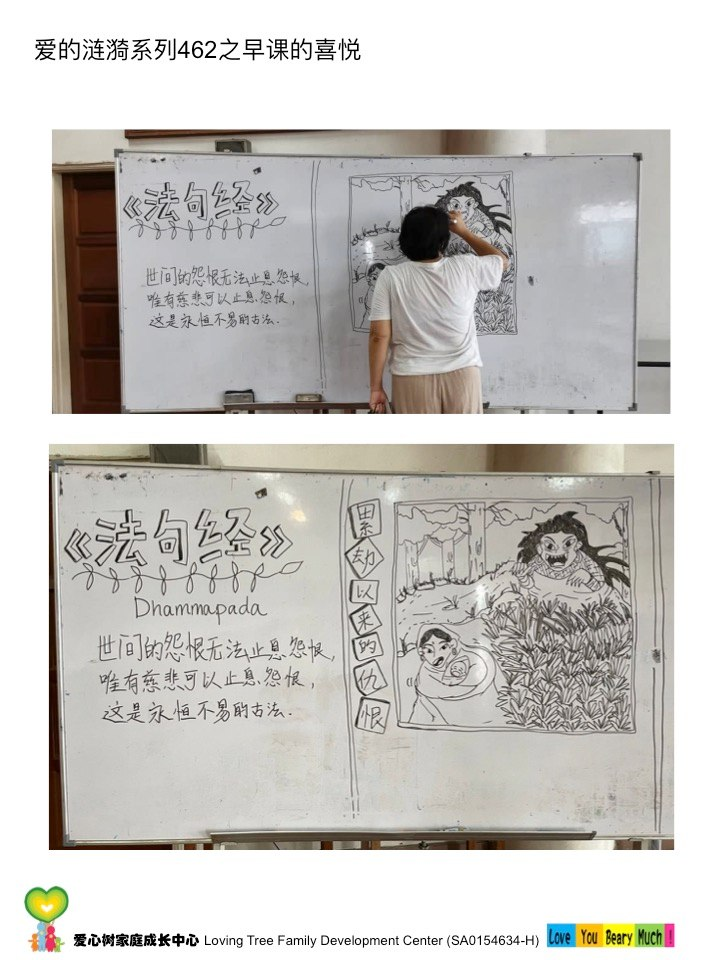 爱的涟漪系列462之早课的喜悦
《法句经》
世间的怨恨无法止息怨恨,
唯有慈悲可以止息怨恨,
这是永恒不易的古法.
《法句经》
Dhammapada
世间的怨恨无法止息怨恨,
唯有慈悲可以止息怨恨,
这是永恒不易的古法.
累劫以来的仇恨
爱心树家庭成长中心 Loving Tree Family Development Center (SA0154634-H)
Love You Beary Much !